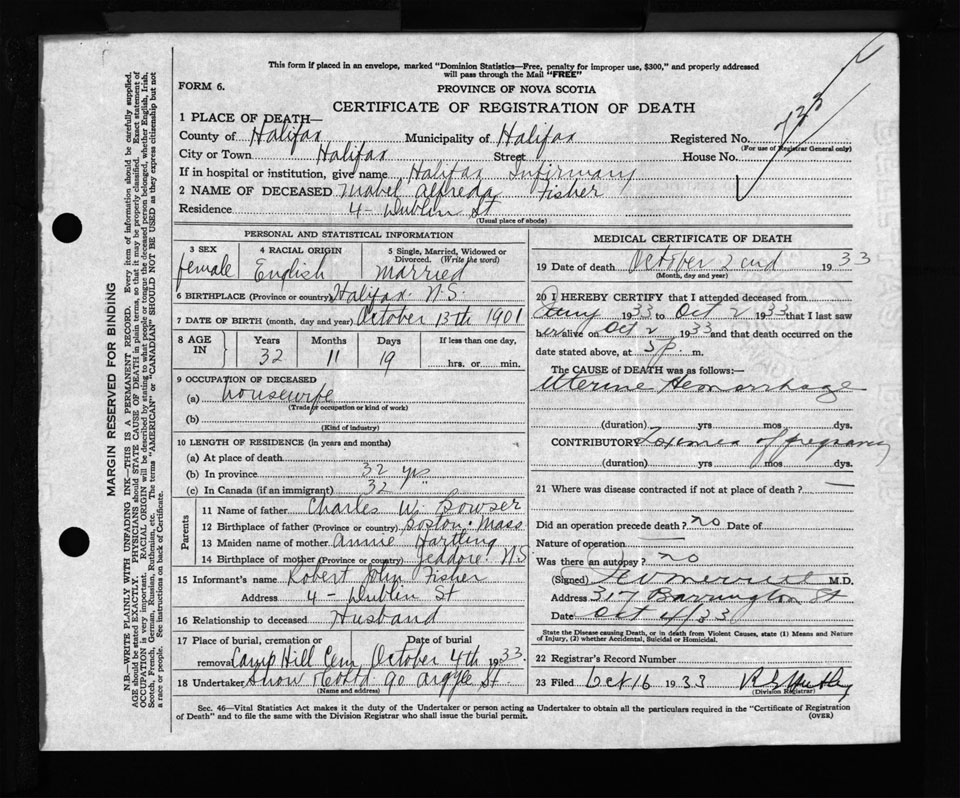 This form if placed in an envelope, marked "Dominion Statistics—Free, penalty for improper use, $300," and properly addressed
will pass through the Mail "FREE"
FORM 6.
PROVINCE OF NOVA SCOTIA
CERTIFICATE OF REGISTRATION OF DEATH
1 PLACE OF DEATH—
County of Halifax Municipality of Halifax Registered No.
(For use of Registrar General only)
City or Town Halifax Street House No.
If in hospital or institution, give name Halifax Infirmary
2 NAME OF DECEASED Mabel Alfreda Fisher
Residence 4 - Dublin St
(Usual place of abode)
MARGIN RESERVED FOR BINDING
N.B.—WRITE PLAINLY WITH UNFADING INK—THIS IS A PERMANENT RECORD. Every item of information should be carefully supplied.
AGE should be stated EXACTLY. PHYSICIANS should STATE CAUSE OF DEATH in plain terms, so that it may be properly classified. Exact statement of
OCCUPATION is very important. RACIAL ORIGIN will be described by stating to what people or tongue the deceased person belonged, whether English, Irish,
Scotch, French, German, Russian, Ruthenian, etc. The terms "AMERICAN" or "CANADIAN" SHOULD NOT BE USED as they express citizenship but not
a race or people. See instructions on back of Certificate.
PERSONAL AND STATISTICAL INFORMATION
3 SEX
female
4 RACIAL ORIGIN
English
5 Single, Married, Widowed or
Divorced. (Write the word)
Married
6 BIRTHPLACE (Province or country) Halifax N.S.
7 DATE OF BIRTH (month, day and year) October 13th 1901
8 AGE IN Years Months Days If less than one day,
32 11 19 hrs. or min.
9 OCCUPATION OF DECEASED
(a) housewife
(Trade or occupation or kind of work)
(b)
(Kind of industry)
10 LENGTH OF RESIDENCE (in years and months)
(a) At place of death
(b) In province 32 yrs
(c) In Canada (if an immigrant) 32 "
Parents
11 Name of father Charles W. Bowser
12 Birthplace of father (Province or country) Boston. Mass
13 Maiden name of mother Annie Hartling
14 Birthplace of mother (Province or country) Jeddore. N.S
15 Informant's name Robert John Fisher
Address 4 - Dublin St
16 Relationship to deceased Husband
17 Place of burial, cremation or Date of burial
removal Camp Hill Cem October 4th 1933.
18 Undertaker Snow & Co Ltd 90 Argyle St.
(Name and address)
MEDICAL CERTIFICATE OF DEATH
19 Date of death October 2cnd 1933
(Month, day and year)
20 I HEREBY CERTIFY that I attended deceased from
1933 to Oct 2 1933 that I last saw
her alive on Oct 2 1933 and that death occurred on the
date stated above, at p. m.
The CAUSE of DEATH was as follows:—
Uterine Hemorrhage
(duration) yrs mos dys.
CONTRIBUTORY Toxemia of pregnancy
(duration) yrs mos dys.
21 Where was disease contracted if not at place of death? —
Did an operation precede death? no Date of
Nature of operation —
Was there an autopsy? no
(Signed) M.D.
Address 317 Barrington St
Date Oct /33
State the Disease causing Death, or in death from Violent Causes, state (1) Means and
Nature of Injury, (2) whether Accidental, Suicidal or Homicidal.
22 Registrar's Record Number
23 Filed Oct 16 1933
(Division Registrar)
Sec. 46—Vital Statistics Act makes it the duty of the Undertaker or person acting as Undertaker to obtain all the particulars required in the "Certificate of Registration
of Death" and to file the same with the Division Registrar who shall issue the burial permit. (OVER)